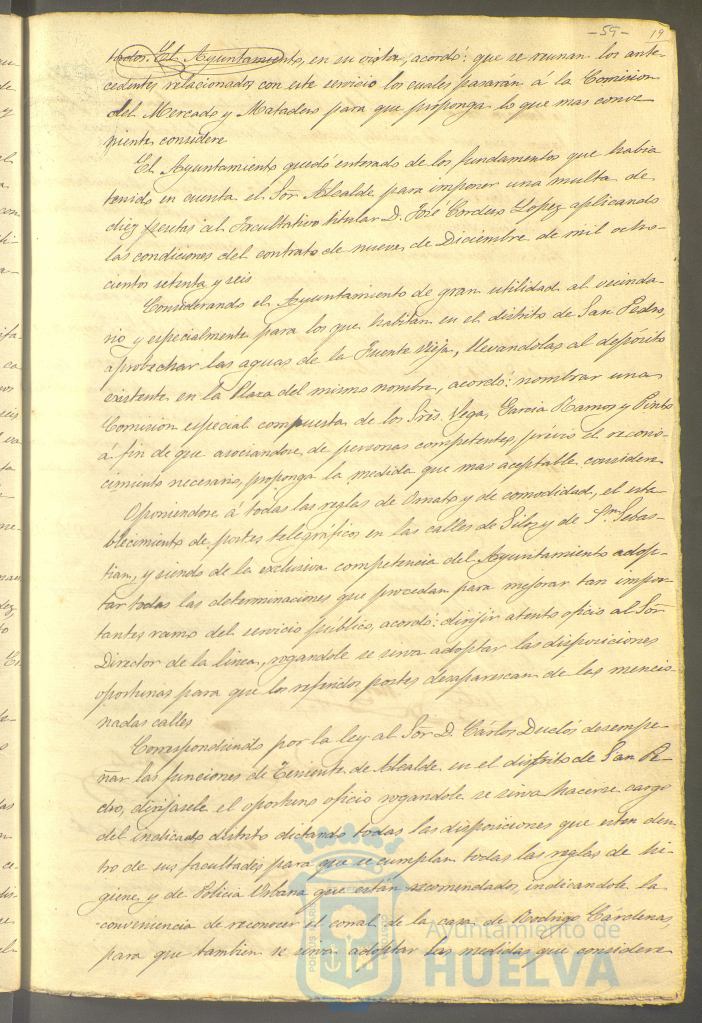 -59-
19
tados. El Ayuntamiento, en su vista, acordó: que se reunan los ante-
cedentes relacionados con este servicio los cuales pasarán á la Comision
del Mercado y Matadero para que proponga lo que mas conve-
niente considere
El Ayuntamiento quedó enterado de los fundamentos que habia
tenido en cuenta el Sor Alcalde para imponer una multa de
diez pesetas al Facultativo titular D. José Cordero Lopez aplicando
las condiciones del contrato de nueve de Diciembre de mil ocho-
cientos setenta y seis
Considerando el Ayuntamiento de gran utilidad al vecinda-
rio y especialmente para los que habitan en el distrito de San Pedro,
aprovechar las aguas de la Fuente Vieja, llevandolas al depósito
existente en la Plaza del mismo nombre, acordó: nombrar una
Comision especial compuesta de los Sres Vega, Garcia Ramos y Pinto
á fin de que asociandose de personas competentes, prévio el recono-
cimiento necesario, proponga la medida que mas aceptable consideren
Oponiendose á todas las reglas de Ornato y de comodidad, el esta-
blecimiento de postes telegráficos en las calles de Silos y de Sn Sebas-
tian, y siendo de la exclusiva competencia del Ayuntamiento adop-
tar todas las determinaciones que procedan para mejorar tan impor-
tantes ramo del servicio público, acordó: dirijir atento oficio al Sor
Director de la linea, rogandole se sirva adoptar las disposiciones
oportunas para que los referidos postes desaparezcan de las mencio-
nadas calles
Correspondiendo por la ley al Sor D. Cárlos Ducló, desempe-
ñar las funciones de Teniente de Alcalde en el distrito de San Pe-
dro, dirijasele el oportuno oficio rogandole se sirva hacerse cargo
del indicado distrito dictando todas las disposiciones que esten den-
tro de sus facultades para que se cumplan todas las reglas de hi-
giene, y de Policia Urbana que están recomendadas, indicandole la
conveniencia de reconocer el corral de la casa de Rodrigo Cárdenas,
para que tambien se sirva adoptar las medidas que considere
Ayuntamiento de
HUELVA